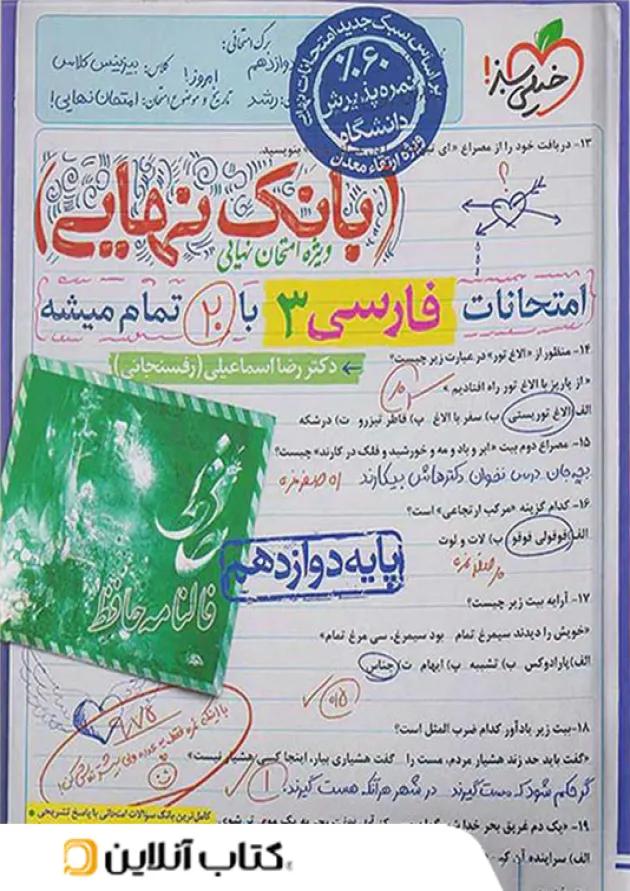 خیلی سبز!
برگ امتحانی:
دوازدهم
کلاس: بیزینس کلاس
امروز!
تاریخ و موضوع امتحان: امتحان نهایی!
رشد
براساس سبک جدید امتحانات نهایی
۶۰٪
نمره پذیرش
دانشگاه
ویژه ارتقاء معدل
۱۳- دریافت خود را از مصراع «ای بنویسید.
(بانک نهایی)
ویژه امتحان نهایی
امتحانات فارسی ۳ با ۲۰ تمام میشه
← دکتر رضا اسماعیلی (رفسنجانی)
۱۴- منظور از «الاغ تور» در عبارت زیر چیست؟
« از پاریز با الاغ تور راه افتادیم »
الف) الاغ توریستی ب) سفر با الاغ پ) قاطر تیزرو ت) درشکه
۱۵- مصراع دوم بیت «ابر و باد و مه و خورشید و فلک در کارند» چیست؟
بچه‌جان درس نخوان دکترهاش بیکارند
۱۶- کدام گزینه «مرکب ارتجاعی» است؟
الف) قوقولی قوقو ب) لات و لوت
پایه دوازدهم
فالنامه حافظ
۱۷- آرایه بیت زیر چیست؟
«خویش را دیدند سیمرغ تمام بود سیمرغ، سی مرغ تمام»
الف) پارادوکس ب) تشبیه پ) ایهام ت) جناس
۱۸- بیت زیر یادآور کدام ضرب المثل است؟
«گفت باید حد زند هشیار مردم، مست را گفت هشیاری بیار، اینجا کسی هشیار نیست»
گر حکم شود که مست گیرند در شهر هر آنکه هست گیرند.
کامل‌ترین بانک سوالات امتحانی با پاسخ تشریحی *
۱۹- «یک دم غریق بحر خدا
الف) سراینده آن
کتاب آنلاین